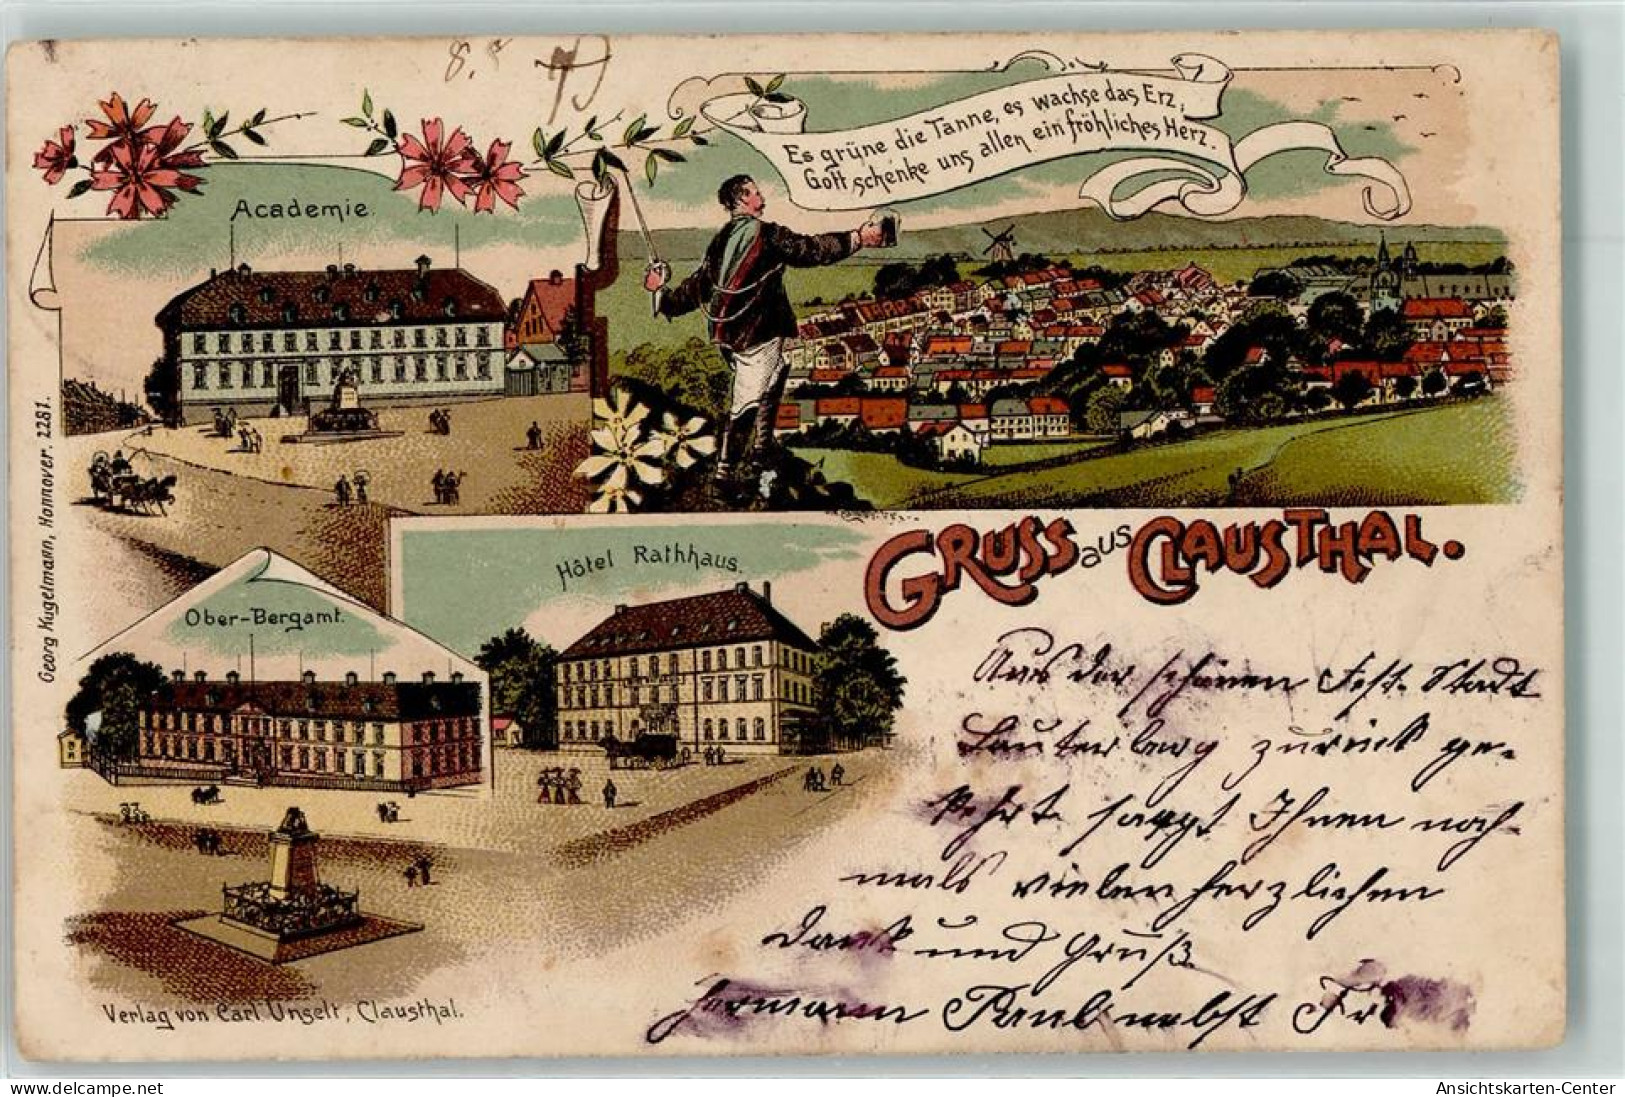 8.
Es grüne die Tanne, es wachse das Erz,
Gott schenke uns allen ein fröhliches Herz.
Academie.
Ober-Bergamt.
Hôtel Rathhaus.
GRUSS aus CLAUSTHAL.
Georg Kugelmann, Hannover. 2281.
Aus der schönen Fest-Stadt
Lauterberg zurück ge-
kehrt sagt Ihnen noch-
mals vielen herzlichen
Dank und Gruß
Hermann Paul nebst
Verlag von Carl Unselt, Clausthal.
Ansichtskarten-Center